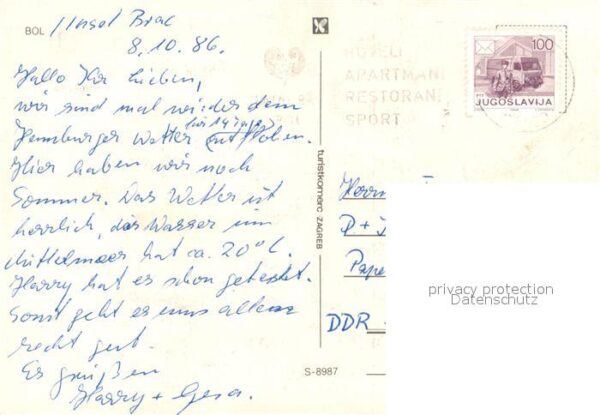 BOL / Insel Brac
8.10.86.
Hallo Ihr Lieben,
wir sind mal wieder dem
Hamburger Wetter für 14 Tage entflohen.
Hier haben wir noch
Sommer. Das Wetter ist
herrlich, das Wasser im
Mittelmeer hat ca. 20°C.
Harry hat es schon getestet.
Sonst geht es uns allen
recht gut.
Es grüßen
Harry + Gesa.
turistkomerc ZAGREB
S-8987
HOTELI
APARTMANI
RESTORANI
SPORT
100
JUGOSLAVIJA
P. +
Pape
DDR
privacy protection
Datenschutz